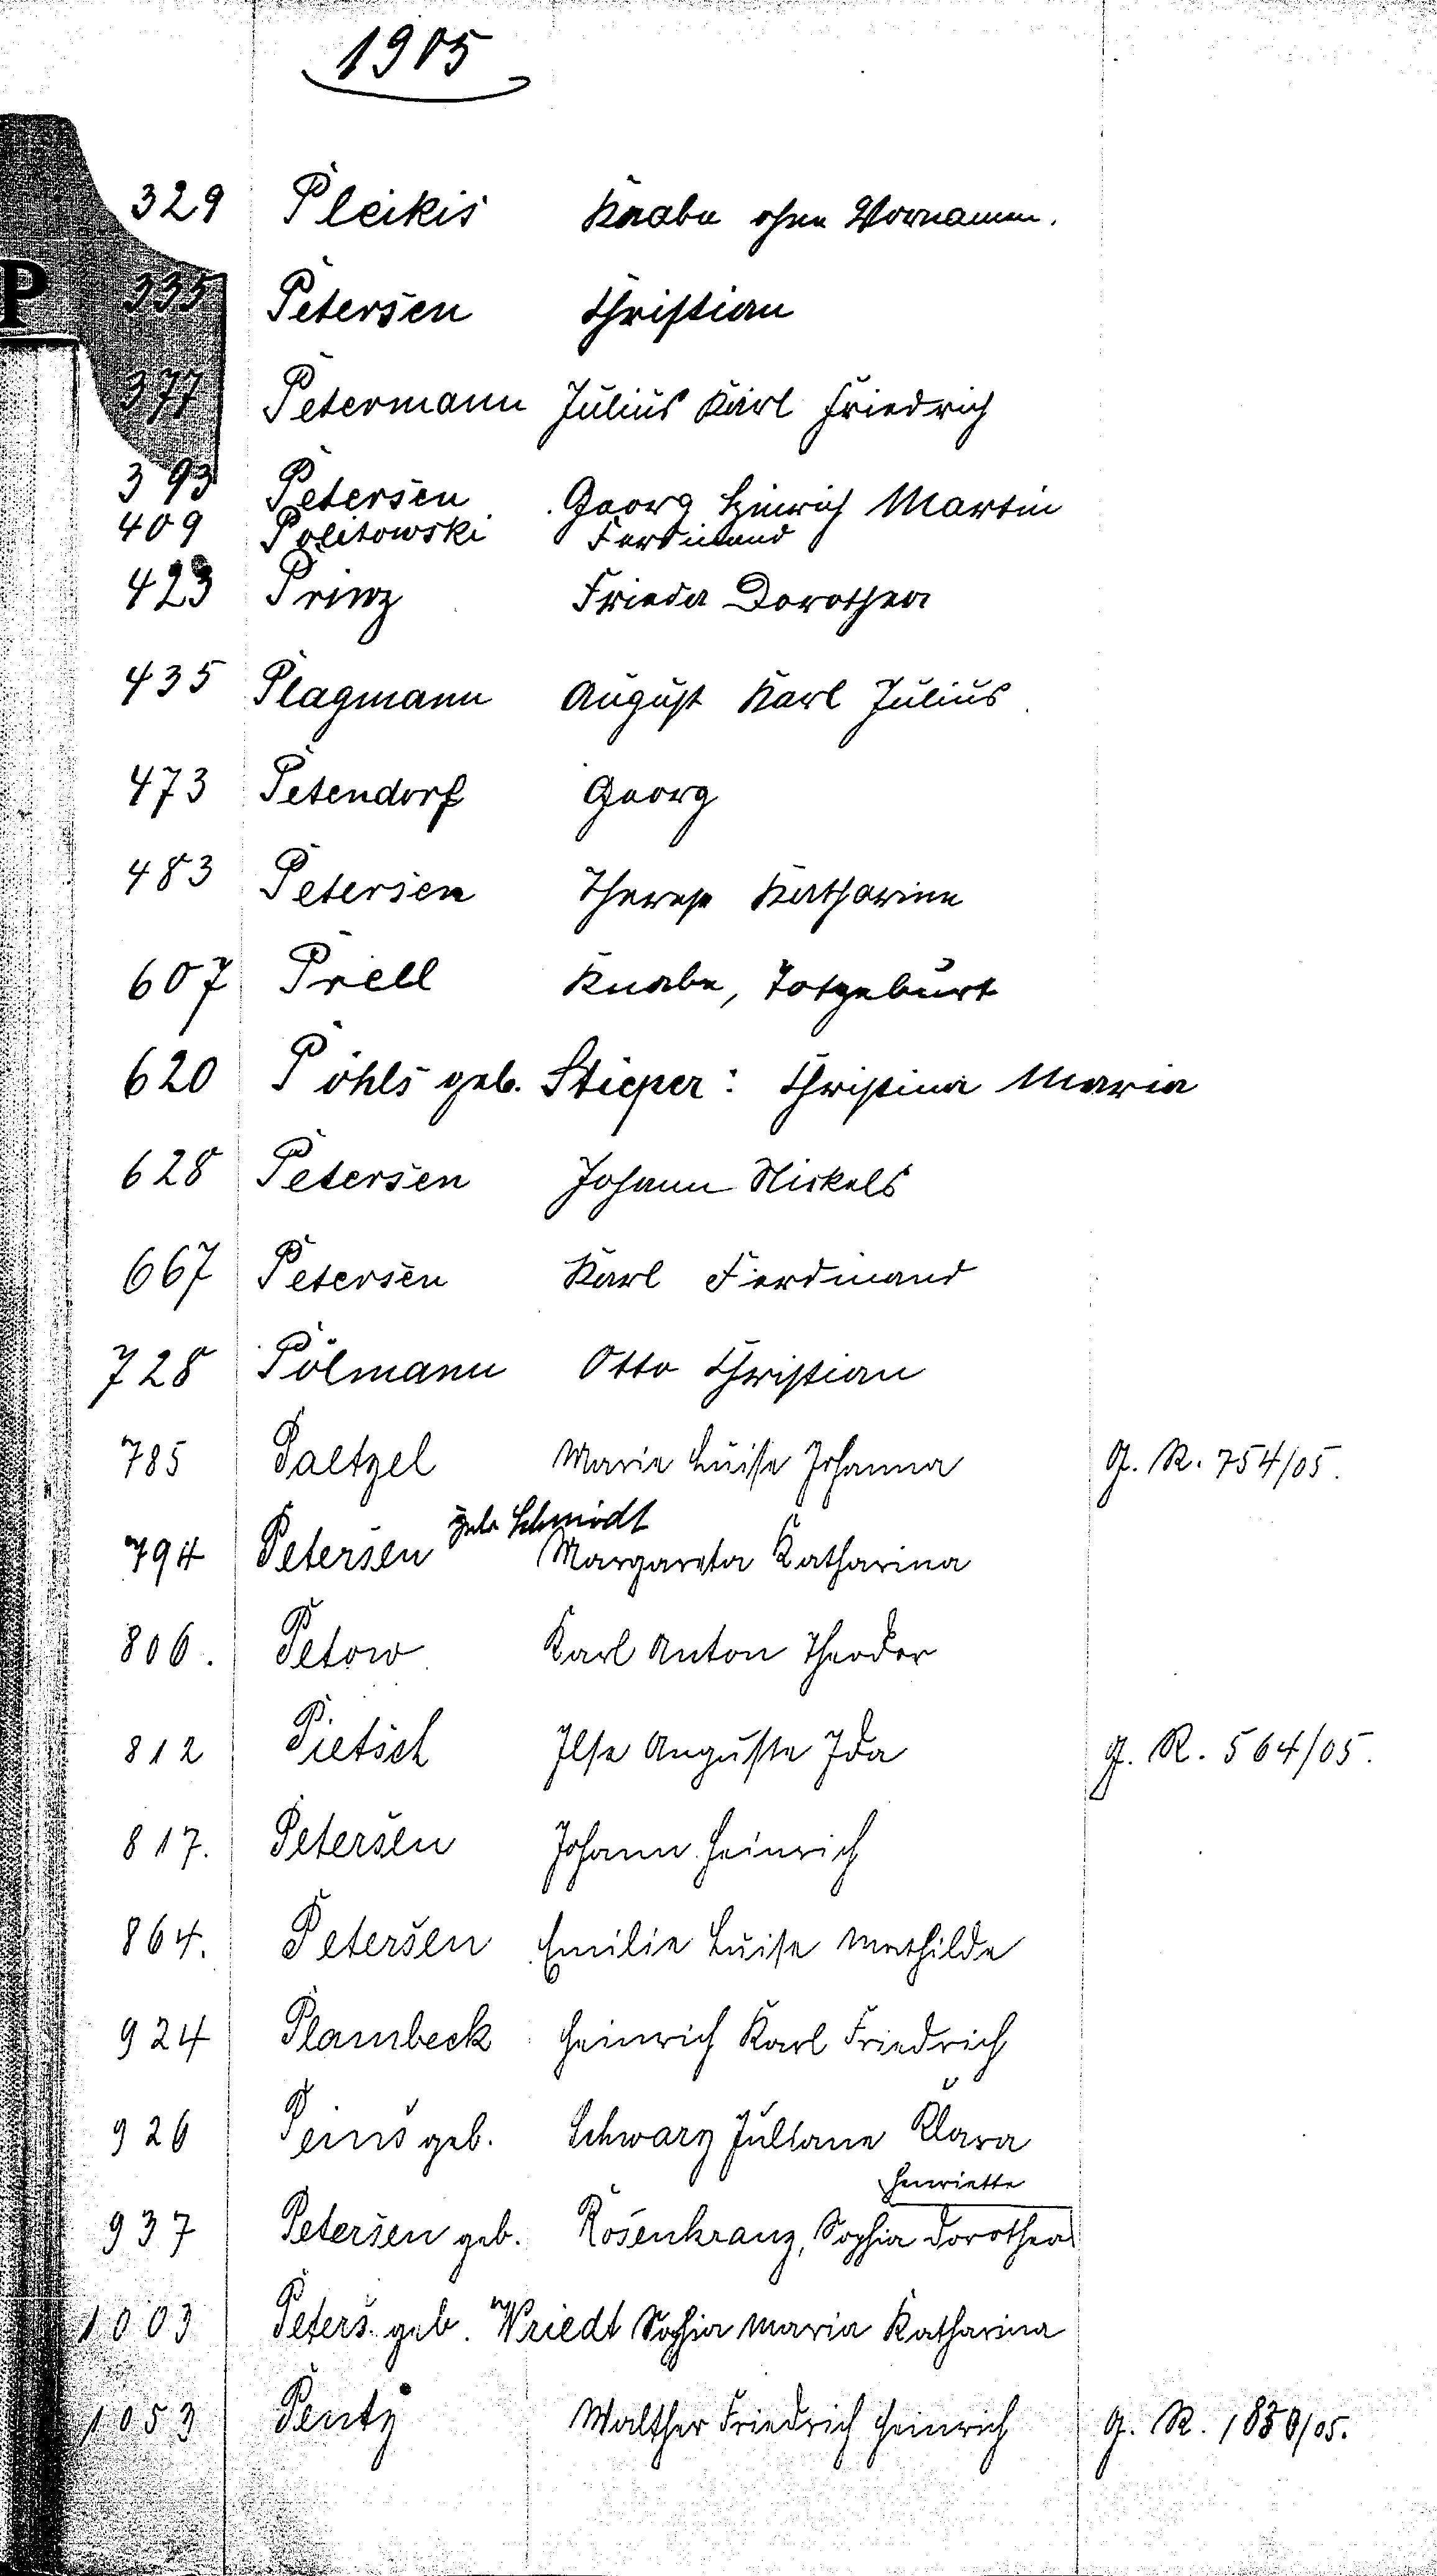 1905
329 Pleikis Knabe ohne Vornamen.
P
335 Petersen Christian
377 Petermann Julius Karl Friedrich
393 Petersen Georg Hinrich Martin
409 Politowski Ferdinand
423 Prinz Frieda Dorothea
435 Plagmann August Karl Julius
473 Petendorf Georg
483 Petersen Therese Katharine
607 Prell Knabe, Totgeburt
620 Pöhls geb. Stieper: Christina Maria
628 Petersen Johann Nickels
667 Petersen Karl Ferdinand
728 Pölmann Otto Christian
785 Paetzel Marie Luise Johanna G. R. 754/05.
geb. Schmidt
794 Petersen Margareta Katharina
806. Petow Karl Anton Theodor
812 Pietsch Ilse Auguste Ida G. R. 564/05.
817. Petersen Johann Heinrich
864. Petersen Emilie Luise Mathilde
924 Plambeck Heinrich Karl Friedrich
926 Peins geb. Schwarz Juliane Klara
Henriette
937 Petersen geb. Rosenkranz, Sophia Dorothea
1003 Peters geb. Wriedt Sophia Maria Katharina
1053 Pentz Walther Friedrich Heinrich G. R. /05.